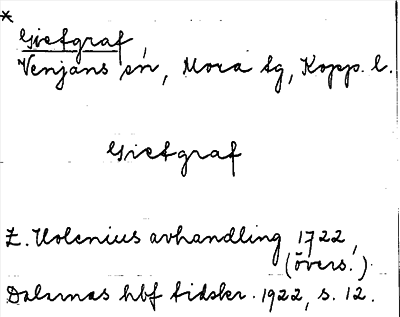 *
Gietgraf,
Venjans sn, Mora tg, Kopp. l.
Gietgraf
Z. Holenius avhandling 1722,
(övers.).
Dalarnas hbf tidskr. 1922, s. 12.